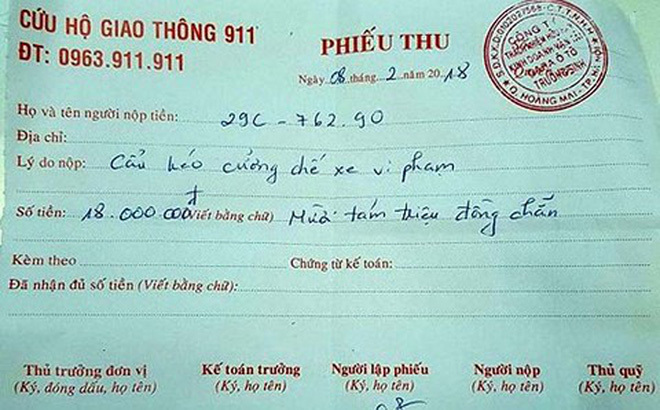 CỨU HỘ GIAO THÔNG 911
ĐT: 0963.911.911
PHIẾU THU
Ngày 08 tháng 2 năm 2018
CÔNG TY
Q. HOÀNG MAI - TP.
Họ và tên người nộp tiền: 29C - 762.90
Địa chỉ:
Lý do nộp: Cẩu kéo cưỡng chế xe vi phạm
Số tiền: 18.000.000đ (Viết bằng chữ) Mười tám triệu đồng chẵn
Kèm theo Chứng từ kế toán:
Đã nhận đủ số tiền (Viết bằng chữ):
Thủ trưởng đơn vị Kế toán trưởng Người lập phiếu Người nộp Thủ quỹ
(Ký, đóng dấu, họ tên) (Ký, họ tên) (Ký, họ tên) (Ký, họ tên) (Ký, họ tên)